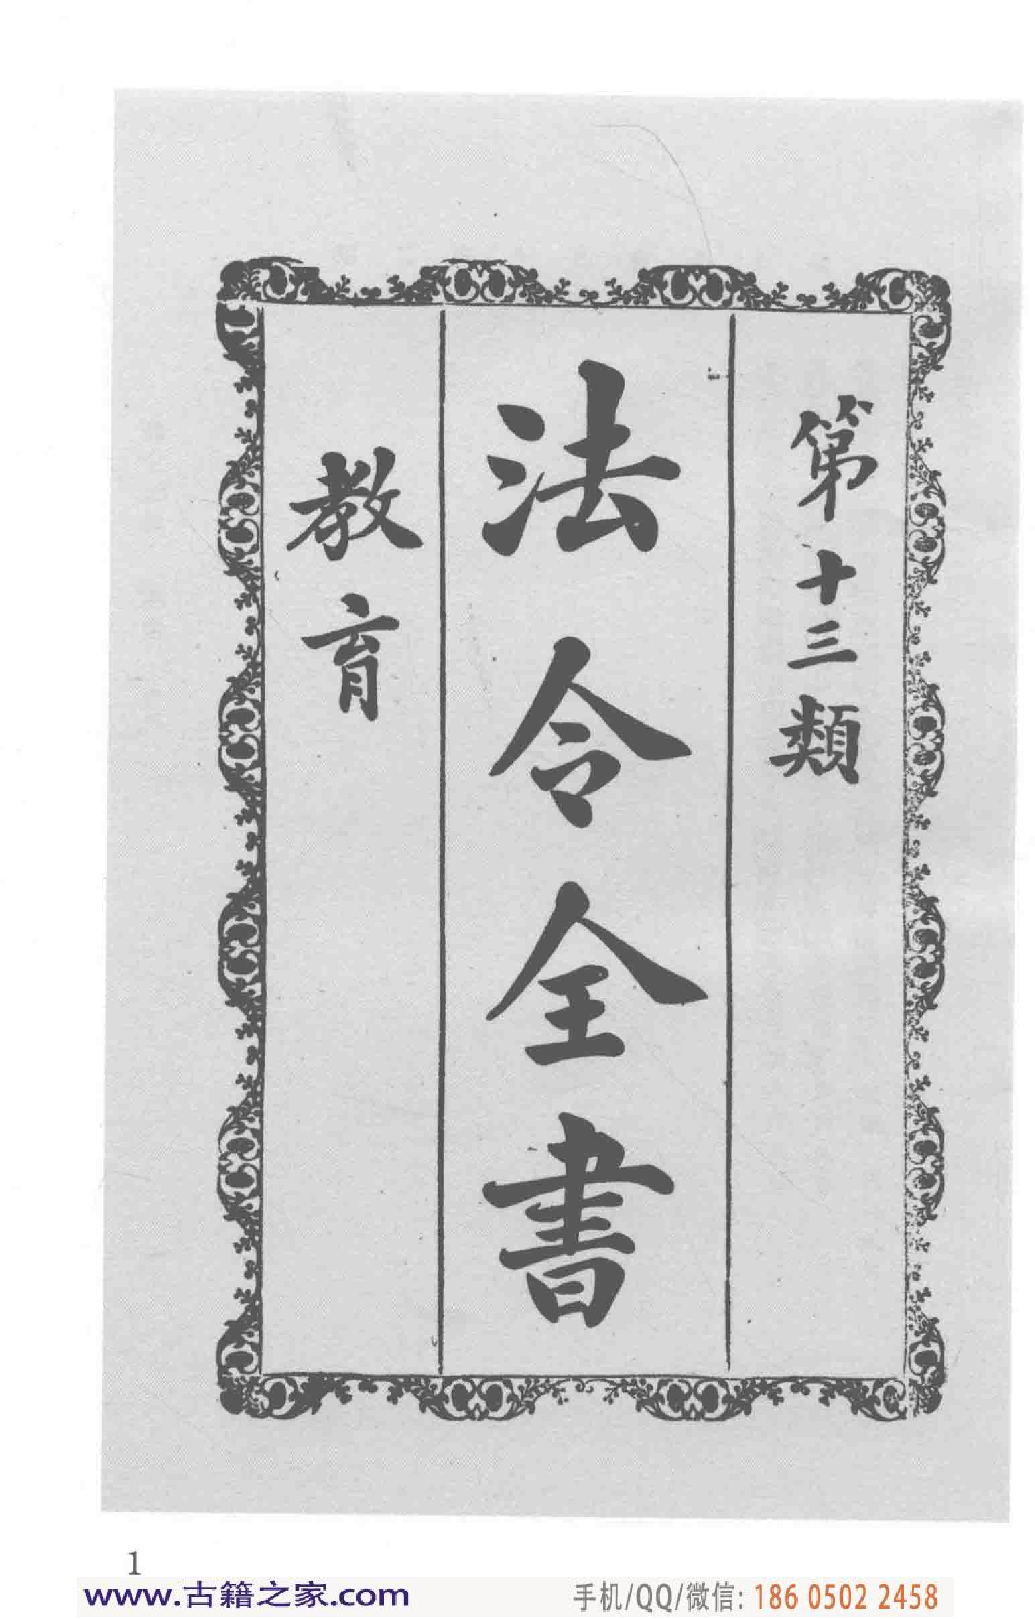 第十三類
法令全書
教育
1
www.古籍之家.com
手机/QQ/微信: 186 0502 2458